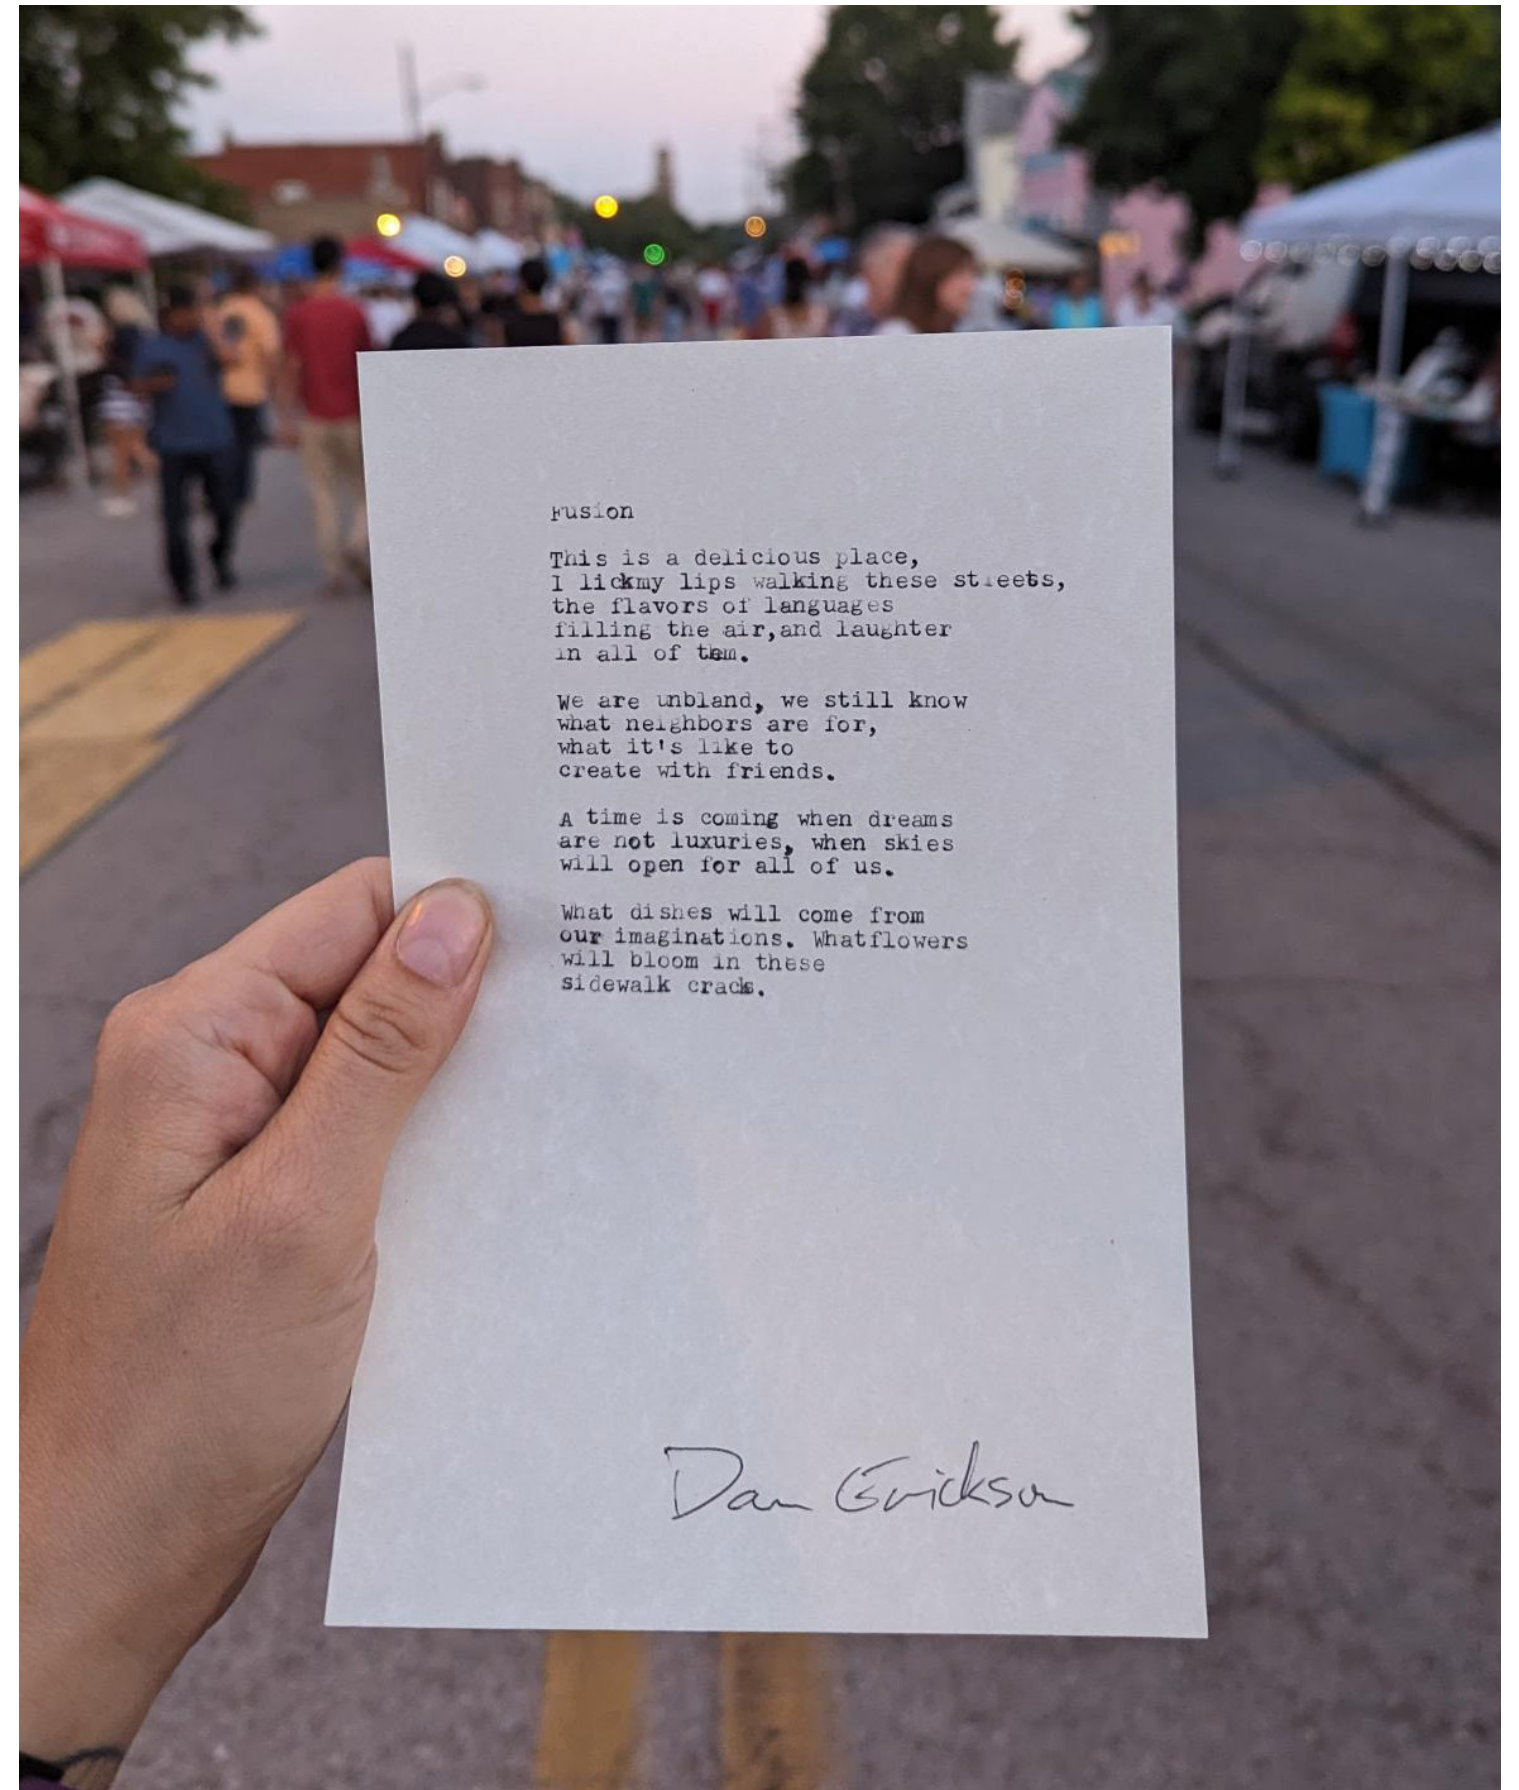 Fusion
This is a delicious place,
I lickmy lips walking these streets,
the flavors of languages
filling the air,and laughter
in all of them.
We are unbland, we still know
what neighbors are for,
what it's like to
create with friends.
A time is coming when dreams
are not luxuries, when skies
will open for all of us.
What dishes will come from
our imaginations. Whatflowers
will bloom in these
sidewalk cracks.
Dan Erickson